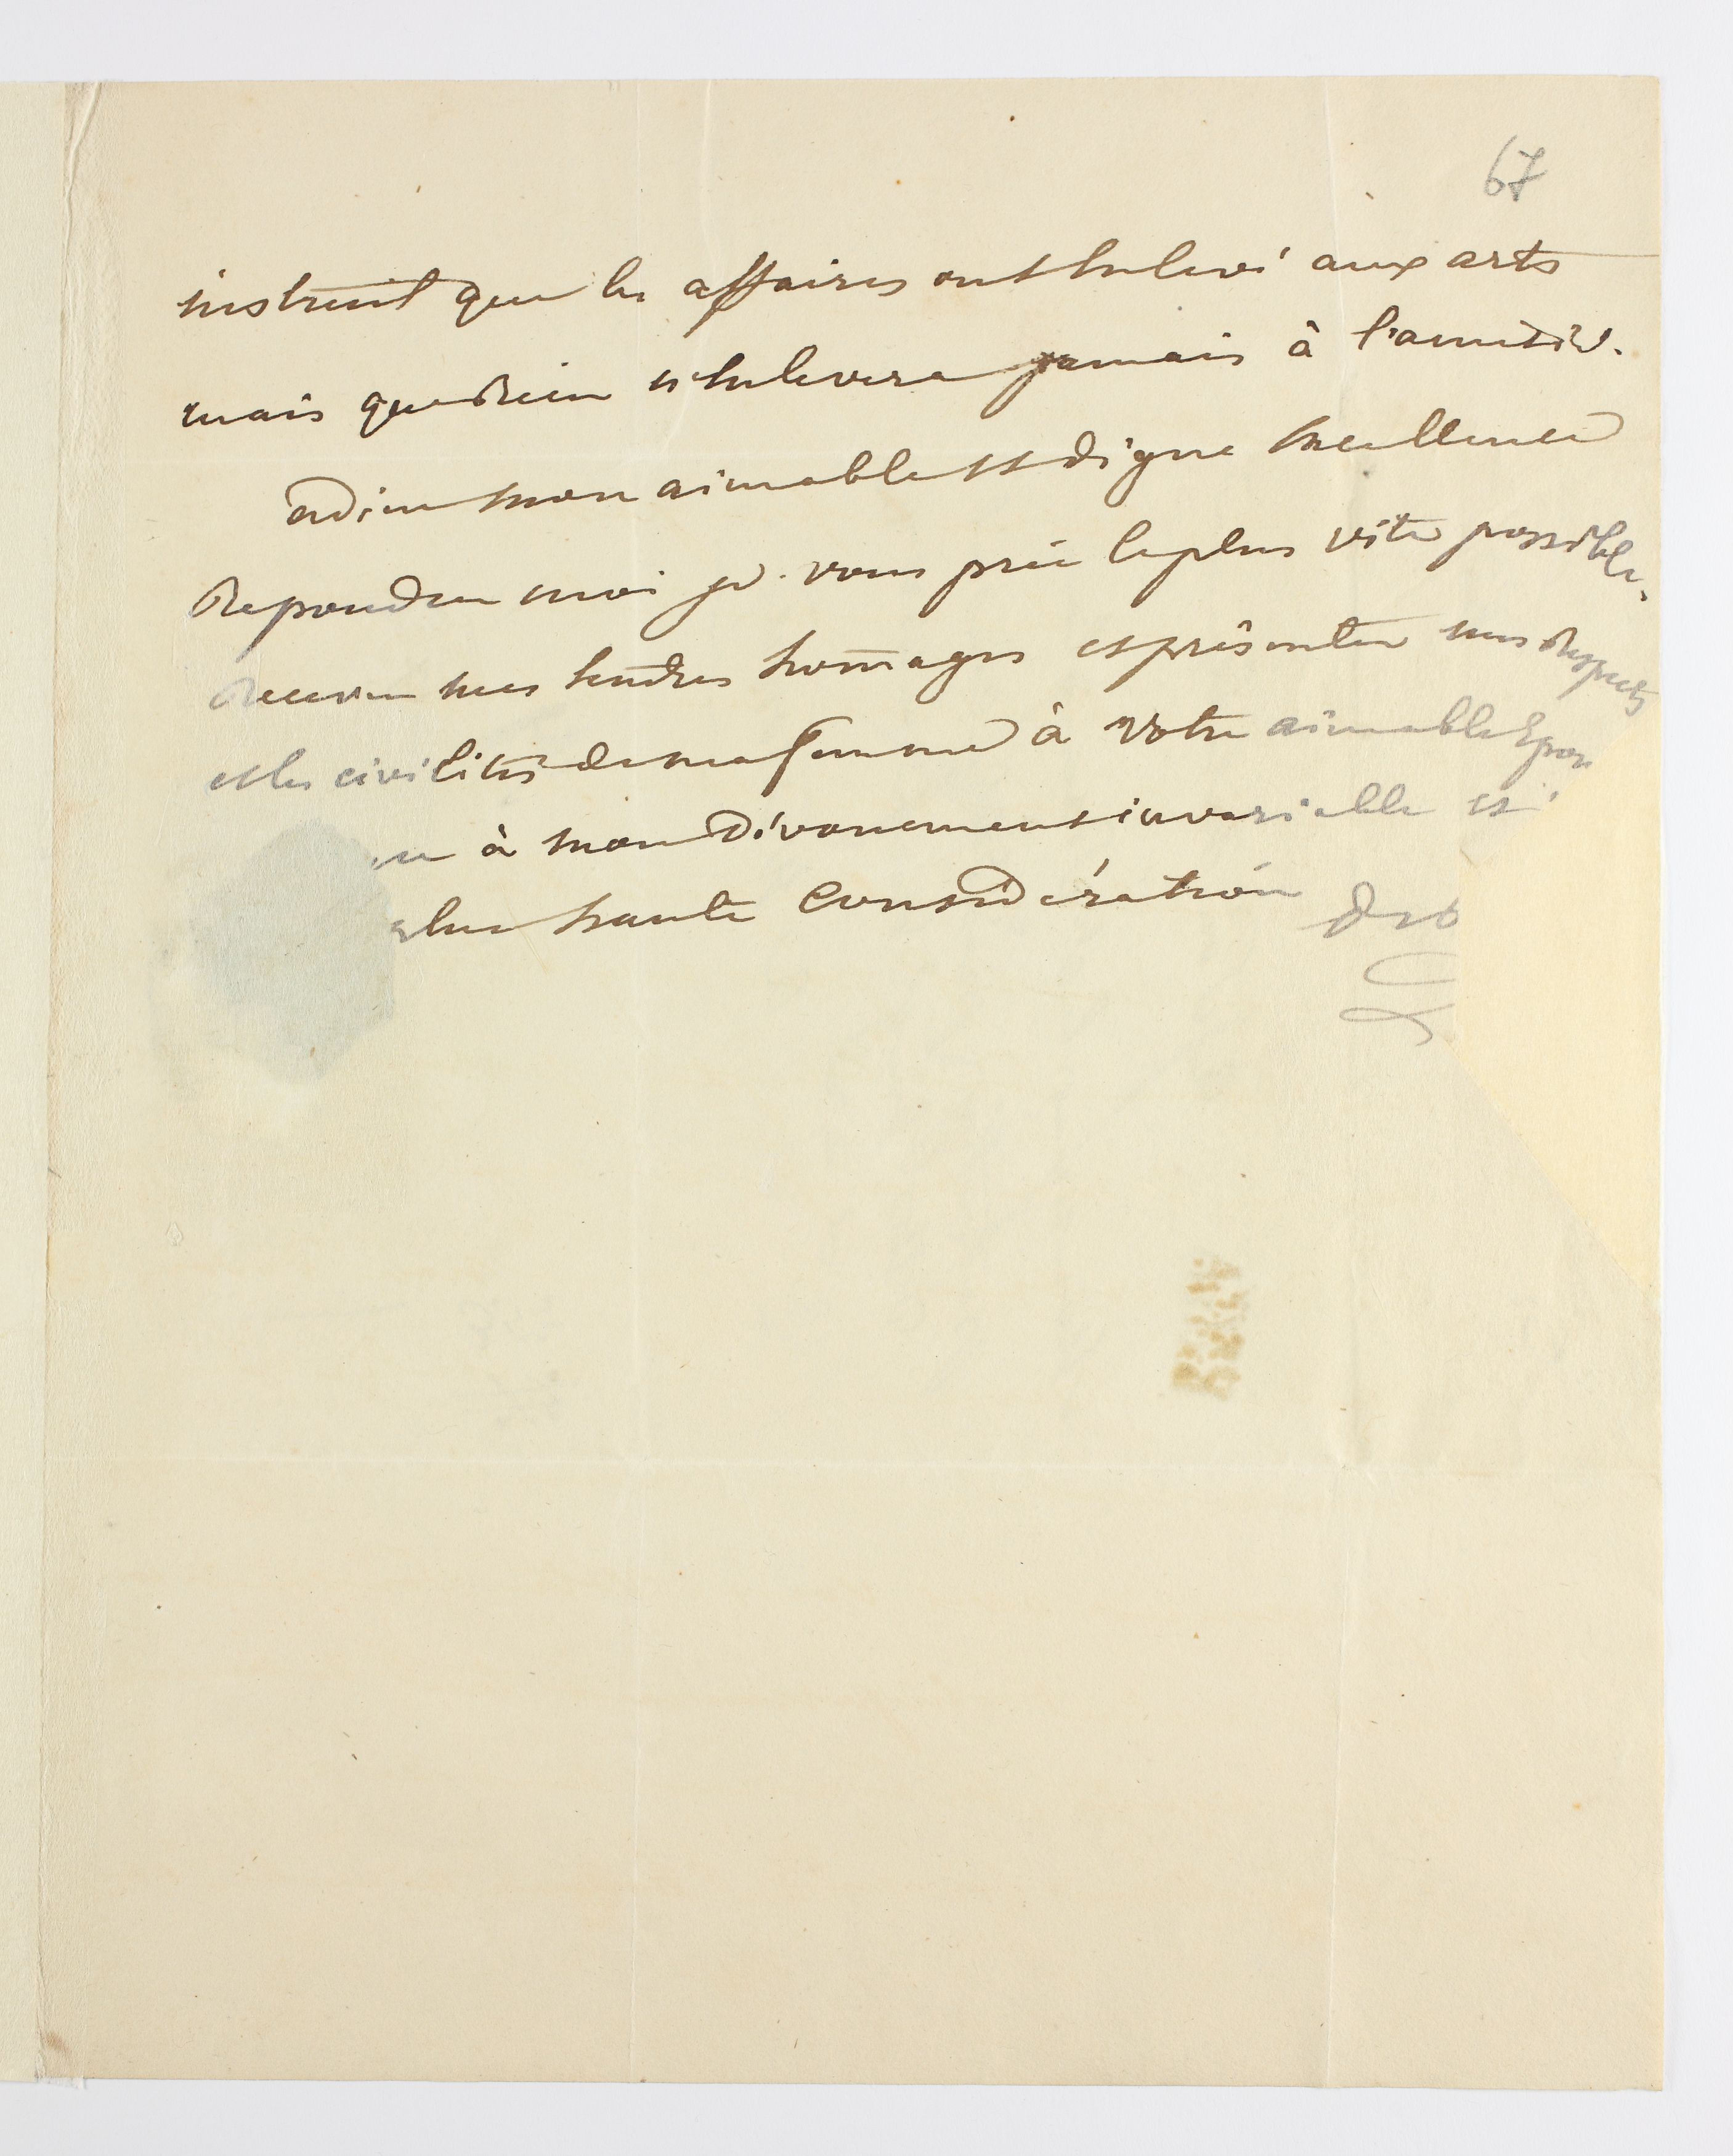 67
instruit que les affaires ont enlevé aux arts
mais que rien n'enlevera jamais à l'amitié.
adieu mon aimable et digne excellence
Repondez moi je vous prie le plus vite possible,
Recevez mes tendres homages et présentez mes Respects
et les civilités de ma femme à votre aimable Epou
à mon dévouement invariable et
plus haute Considération